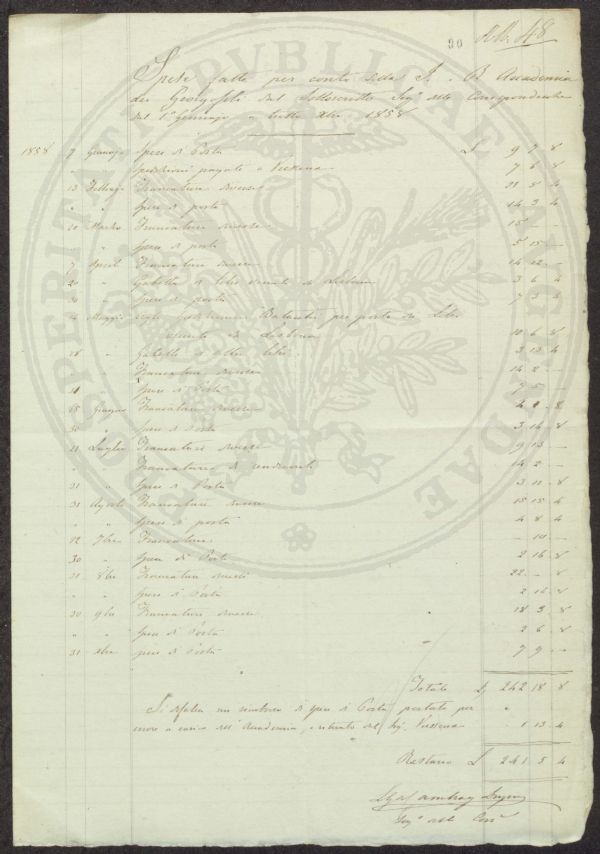 90
Spese fatte per conto della I. e R. Accademia
dei Georgofili dal Sottoscritto Seg. delle Corrispondenze
dal 1° Gennajo a tutto Xbre 1858
1858 7 Gennajo Spese di Posta £ 9 7 8
Spedizioni pagate a 7 6 8
13 Febbrajo Francature diverse 21 8 4
" " Spese di posta 14 3 4
20 Marzo Francature diverse 15 — —
" Spese di posta 5 15 —
7 April Francature diverse 14 12 —
20 " Gabella di libri venuti da Lisbona 3 6 4
30 " Spese di posta 7 3 4
Maggio per porto di Libri
venuti da Lisbona 10 6 8
18 " Gabella di altri libri 3 13 4
" Francature diverse 14 2 —
Spese di Posta 7 5 —
Giugno Francature diverse 4 8
30 " Spese di Posta 3 16 8
Luglio Francature diverse 9 13 —
" Francature di rendiconti 14 2 —
31 " Spese di Posta 3 8
31 Agosto Francature diverse 15 15 4
" " Spese di posta 4 8 4
12 7bre Francature — 10 —
30 " Spese di Posta 2 16 8
31 8bre Francature diverse 22 — 8
" " Spese di Posta 2 16 8
30 9bre Francature diverse 18 3 8
" " Spese di Posta 2 6 8
31 Xbre Spese di Posta 7 9 —
Totale £ 242 18 8
Si defalca un rimborso di spese di Posta portate per
errore a carico dell'Accademia, e ritirato dal Sig. 1 13 4
Restano £ 241 5 4
Seg. delle Corr.
PROSPERITATI PUBLICAE AUGENDAE